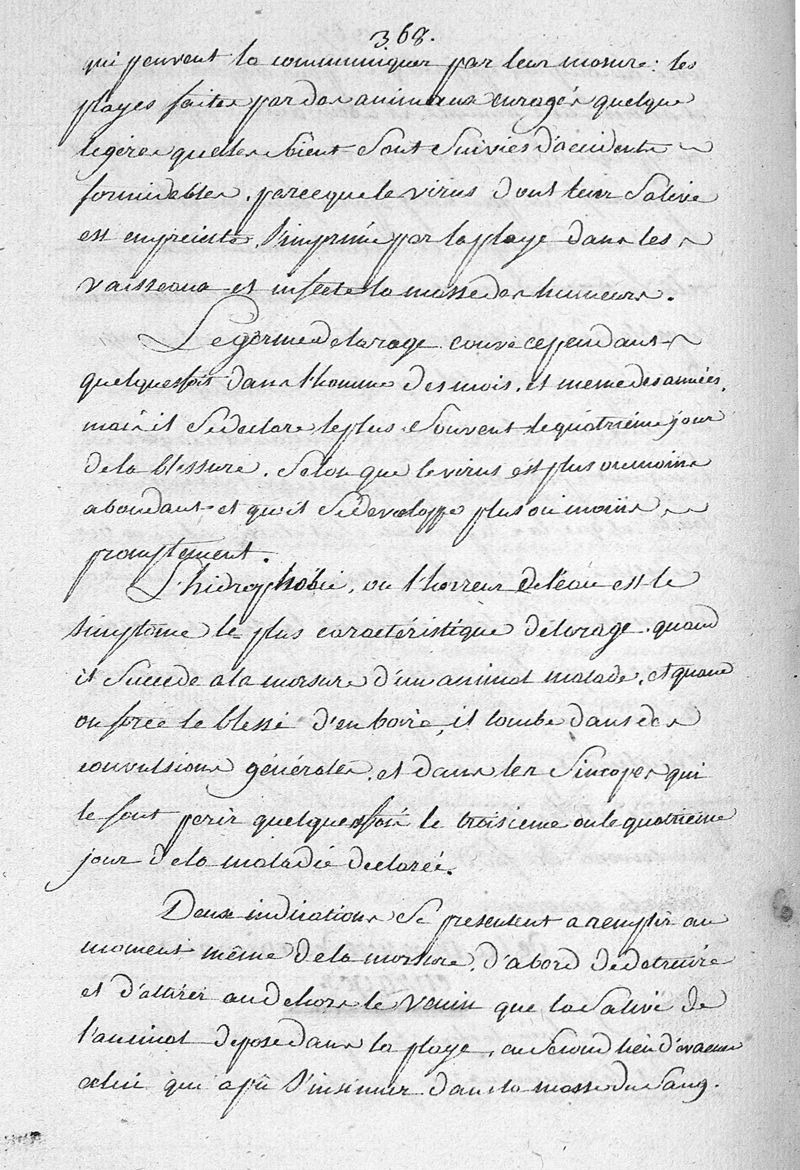 368.
qui peuvent la communiquer par leur morsure: les
playes faites par des animeaux enragés quelque
légeres quelles soient sont suivies d'accidents
formidables, parceque le virus dont leur salive
est empreinte, s'imprime par la playe dans les
vaisseaux et infecte la masse des humeurs.
Le germe de la rage couve cependant
quelquesfois dans l'homme des mois, et meme des années,
mais il se déclare le plus souvent le quatrieme jour
de la blessure, selon que le virus est plus ou moins
abondant et qu'il se dévéloppe plus ou moins
promptement.
L'hidrophobie, ou l'horreur de l'eau est le
simptôme le plus caractéristique de la rage, quand
il succede a la morsure d'un animal malade, et quand
on force le blessé d'en boire, il tombe dans des
convulsions générales, et dans les sincopes qui
le font perir quelquesfois le troisieme ou le quatrieme
jour de la maladie declarée.
Deux indications se presentent a remplir au
moment même de la morsure, d'abord de détruire
et d'attirer au dehors le venin que la salive de
l'animal depose dans la playe, en second lieu d'evacuer
celui qui a pû s'insinuer dans la masse du sang.